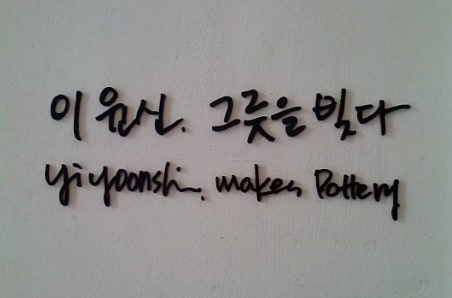 이윤신. 그릇을 빚다
yiyoonshin. makes Pottery